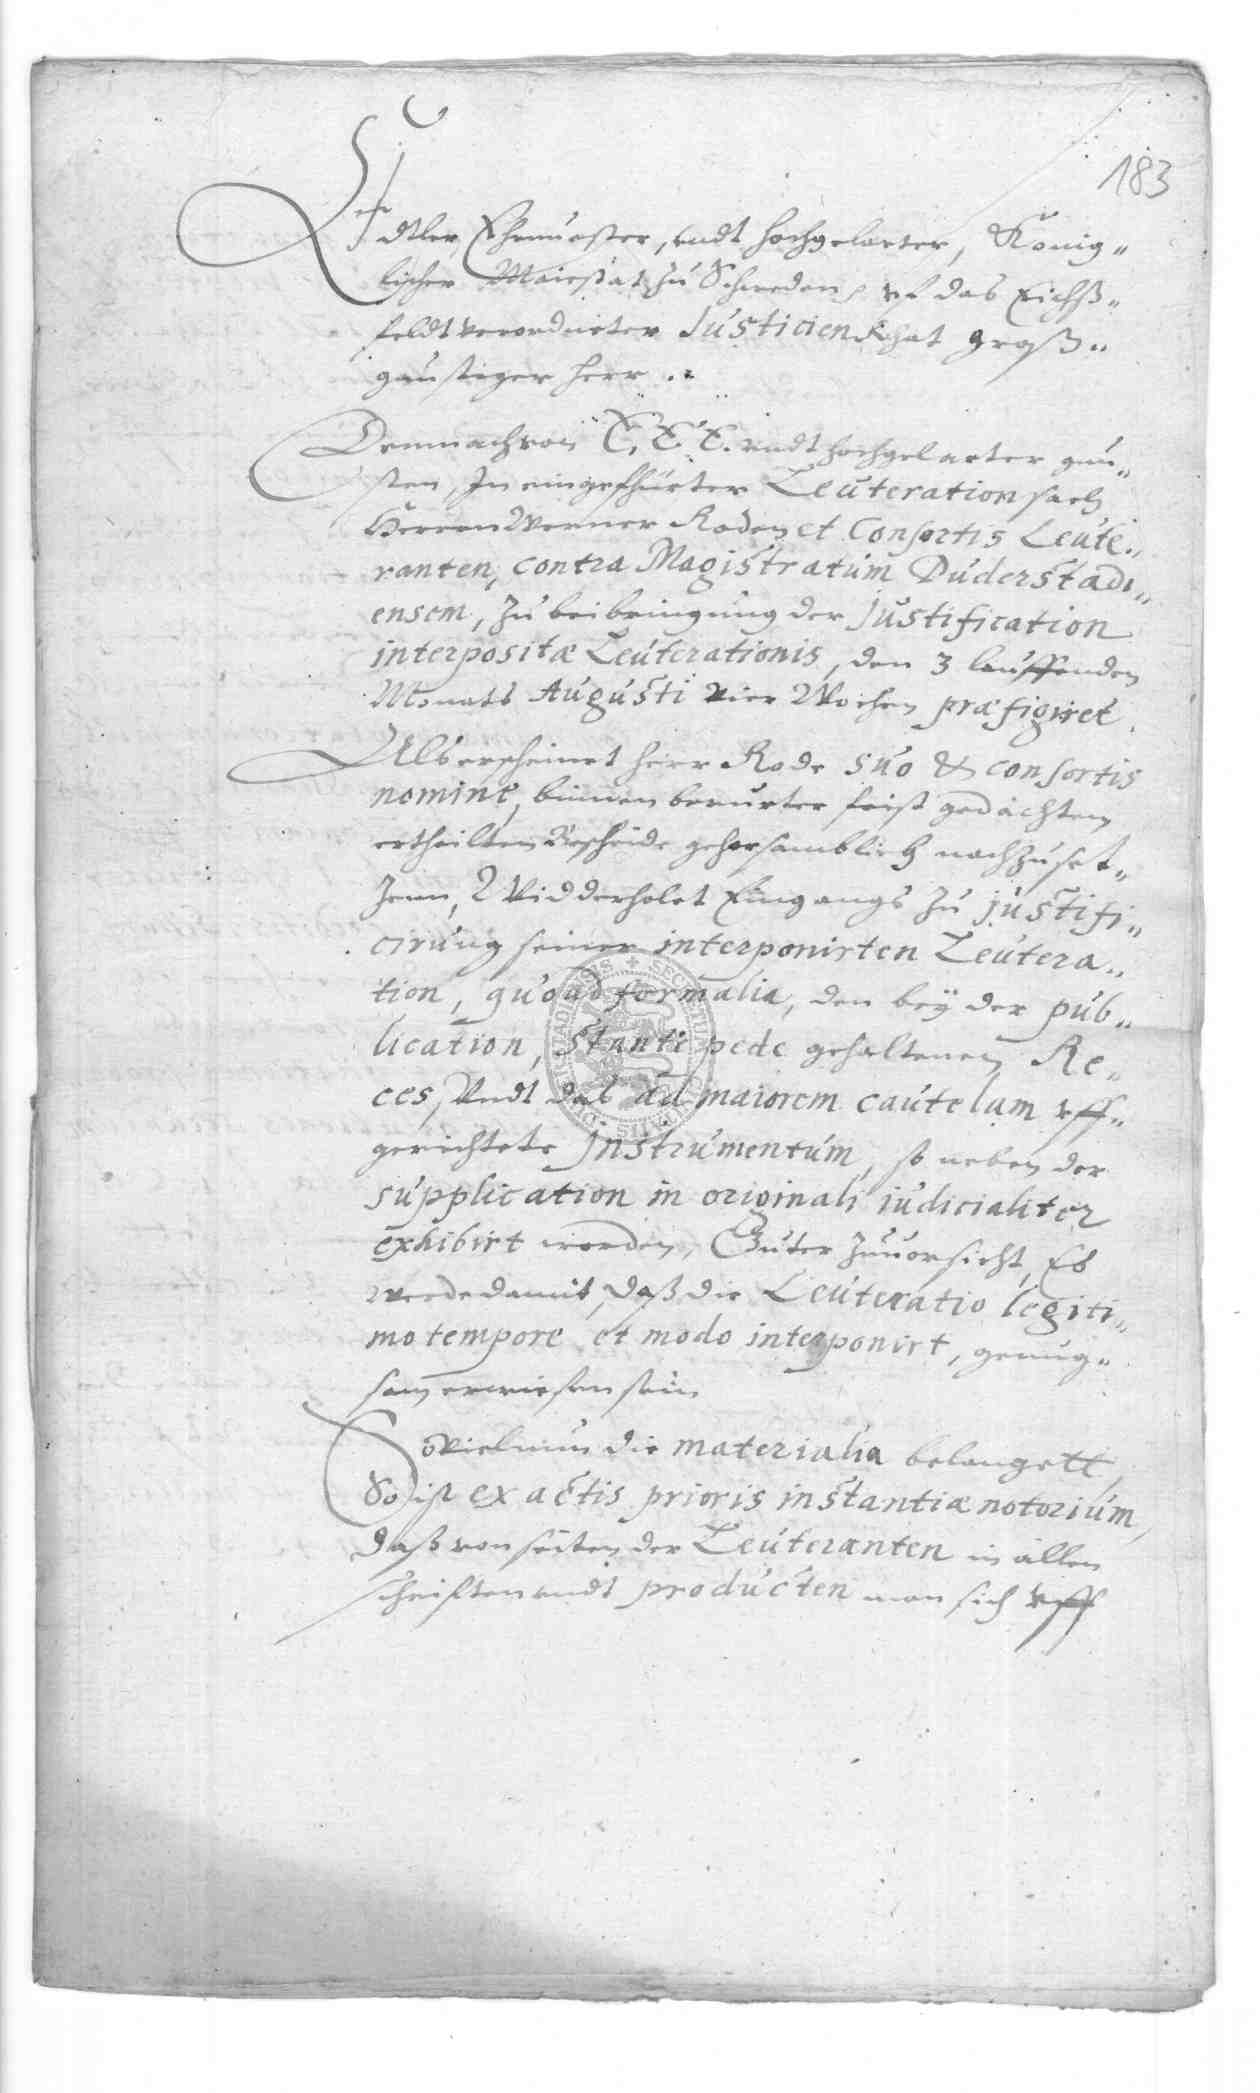 183
Edtler, Ehrnuester, vndt hochgelarter, König„
licher Maiestat zu Schweden, vf das Eichß„
feldt verordneter Justicien Rhat groß„
günstiger herr.
Demnach von E. E. E. vndt hochgelarter gun„
sten, In eingefhürter Leuteration sach
Herren Werner Roden et Consortis Leute„
ranten, contra Magistratum Duderstadi„
ensem, zu beibringung der Justification
interpositæ Leuterationis, den 3 lauffenden
Monats Augusti vier Wochen præfigiret.
Als erscheinet herr Rode suo & consortis
nomine, binnen berurter frist gedachtem
ertheilten Bescheide gehorsamblich nachzuset„
zenn, Widderholet Eingangs zu justifi„
cirung seiner interponirten Leutera„
tion, quoad formalia, den beÿ der pub„
lication, stanti pede gehaltenen Re„
ces, Vndt das ad maiorem cautelam vff„
gerichtete Instrumentum, so neben der
supplication in originali iudicialiter
exhibirt worden, Guter Zuuorsicht, Es
werde damit, daß die Leuteratio legiti„
mo tempore et modo interponirt, genug„
sam erwiesen sein
Soviel nun die materialia belangett,
So ist ex actis prioris instantiæ notorium,
Daß von seiten der Leuteranten in allen
schrifften vndt producten man sich vff